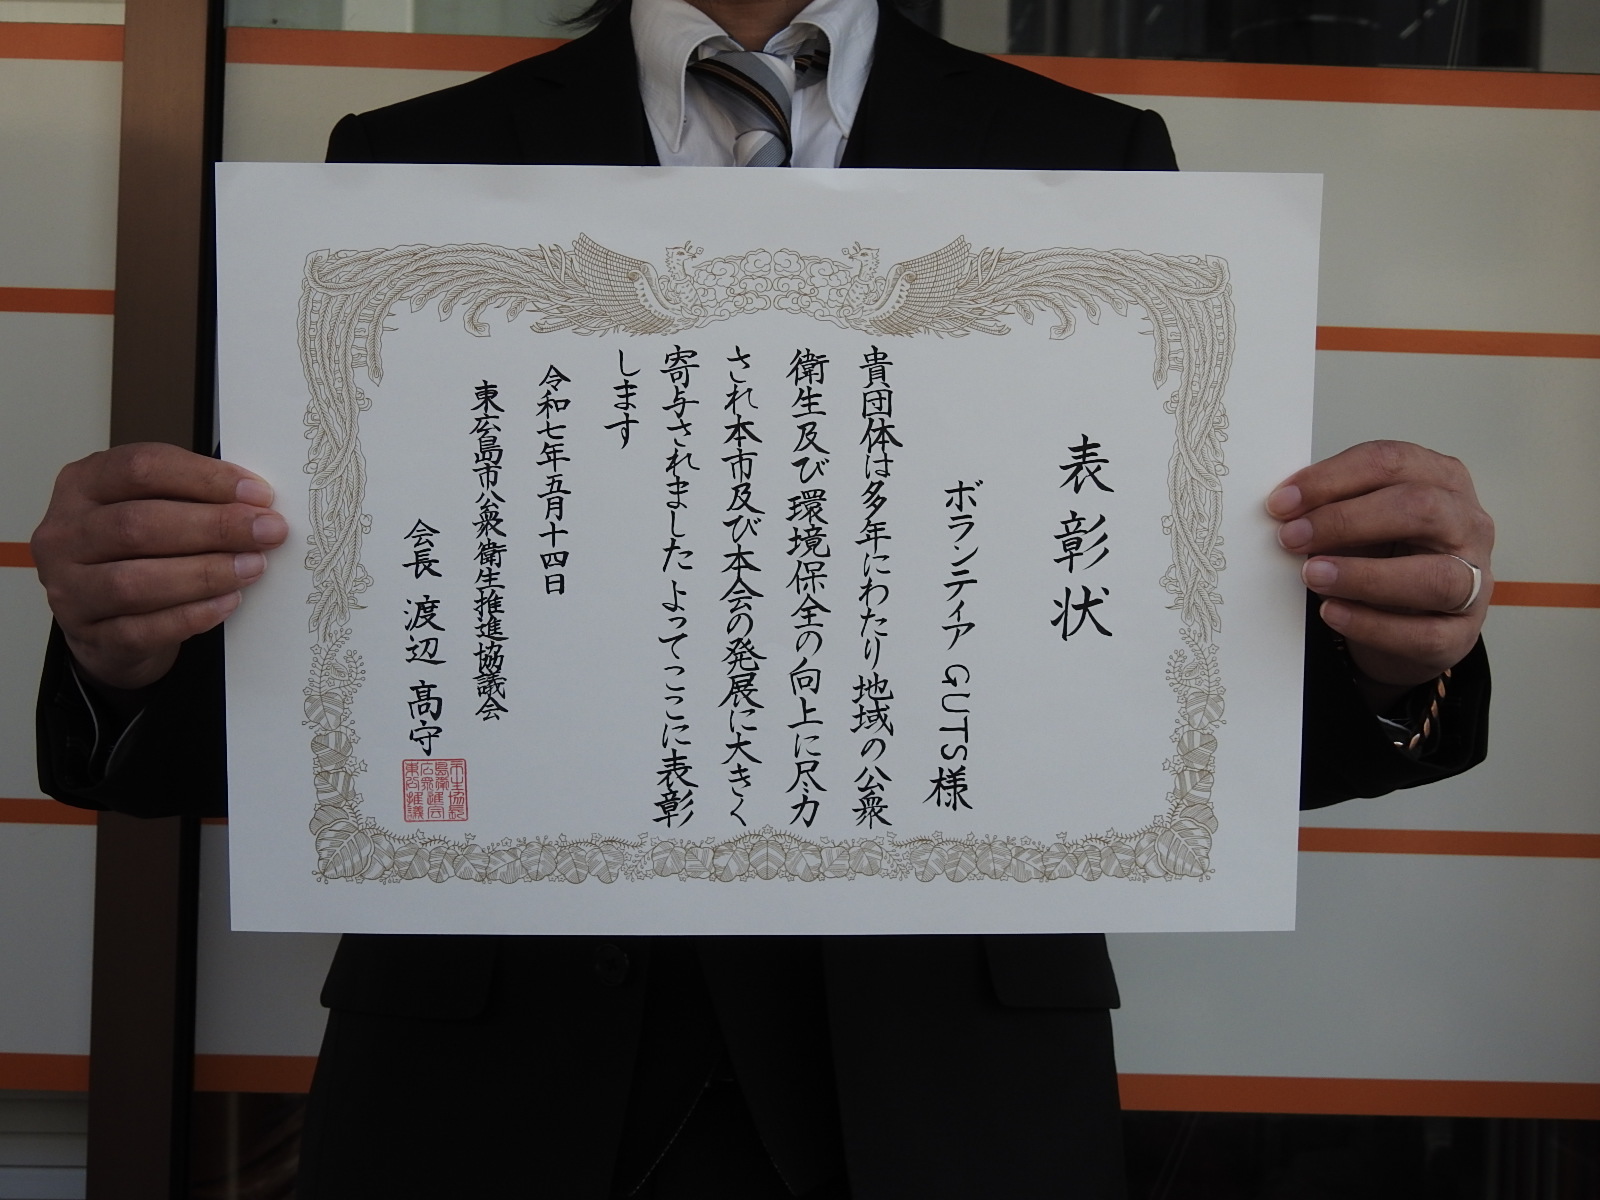 表彰状
ボランティア GUTS様
貴団体は多年にわたり地域の公衆
衛生及び環境保全の向上に尽力
され本市及び本会の発展に大きく
寄与されました よってここに表彰
します
令和七年五月十四日
東広島市公衆衛生推進協議会
会長 渡辺 髙守